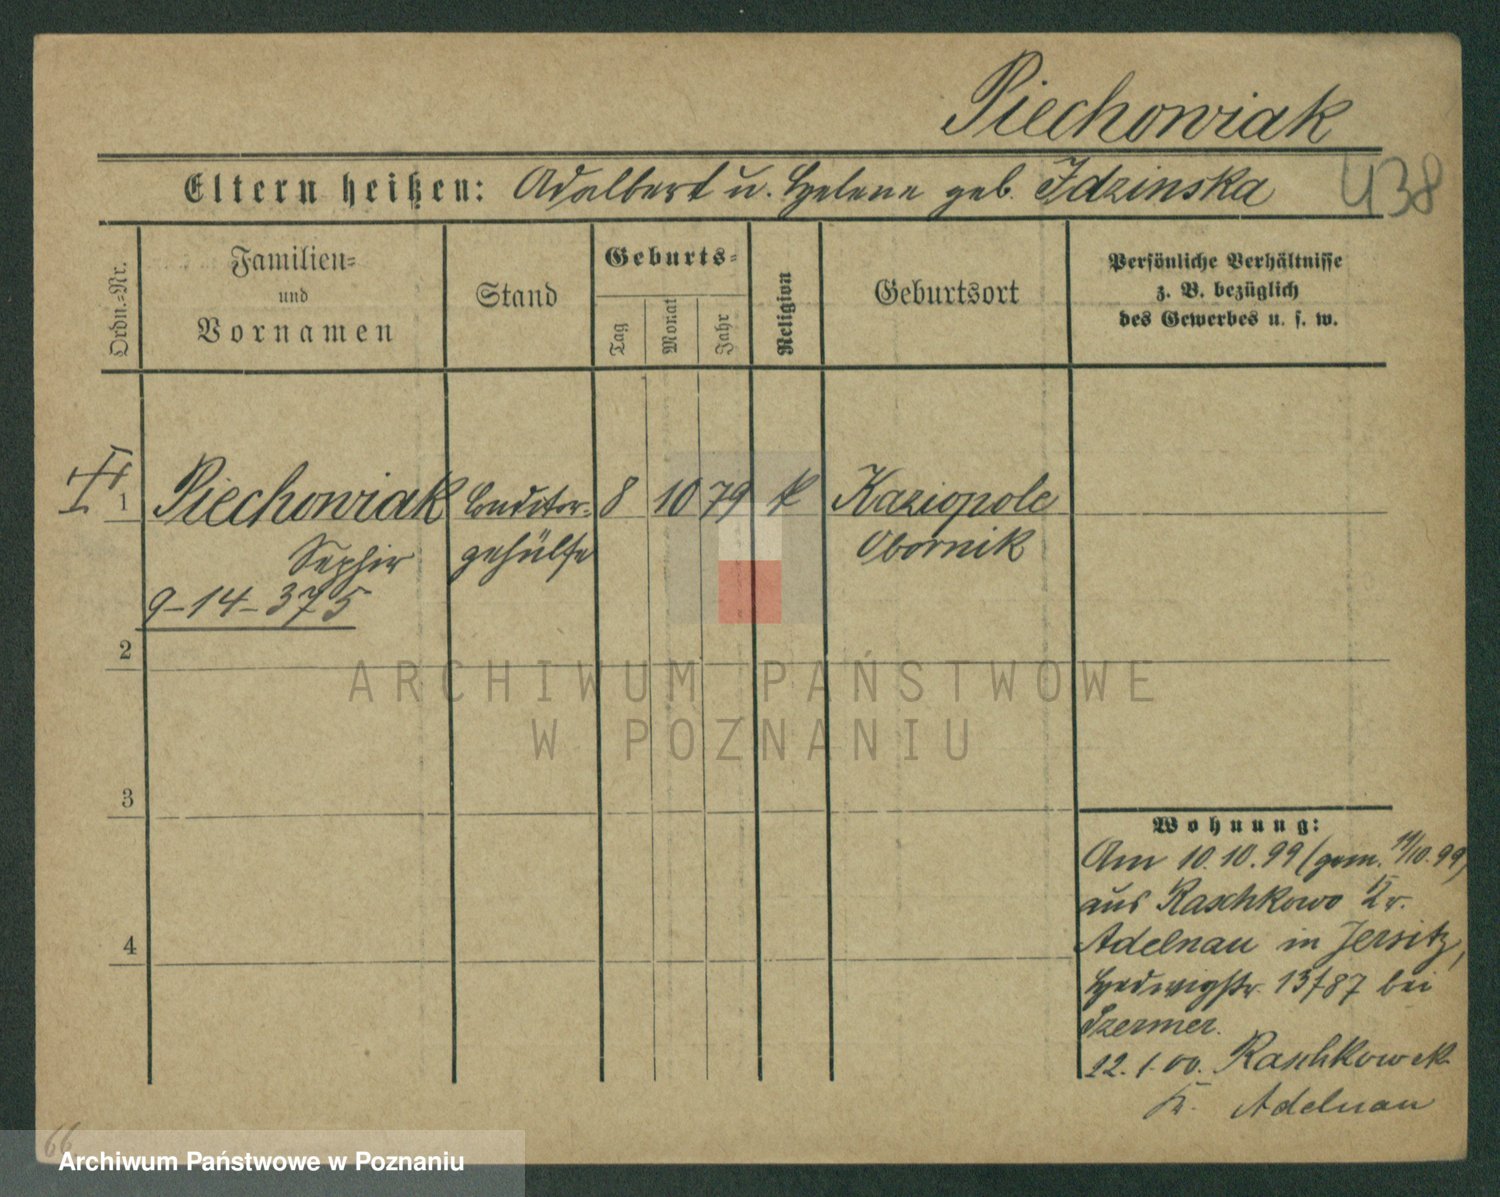 Piechowiak
438
Eltern heißen: Adalbert u. Helene geb. Idzinska
Ordn.-Nr.
Familien-
und
Vornamen
Stand
Geburts-
Tag
Monat
Jahr
Religion
Geburtsort
Persönliche Verhältnisse
z. B. bezüglich
des Gewerbes u. s. w.
1 Piechowiak Conditor- 8 10 79 k Kaziopole
gehülfe Obornik
9-14-375
2
3
4
Wohnung:
Am 10.10.99 (gem. 11/10.99)
aus Raschkowo Kr.
Adelnau in Jersitz,
Hedwigstr. 13/87 bei
Szermer.
22.1.00. Raschkowek
Kr. Adelnau
66
ARCHIWUM PAŃSTWOWE
W POZNANIU
Archiwum Państwowe w Poznaniu